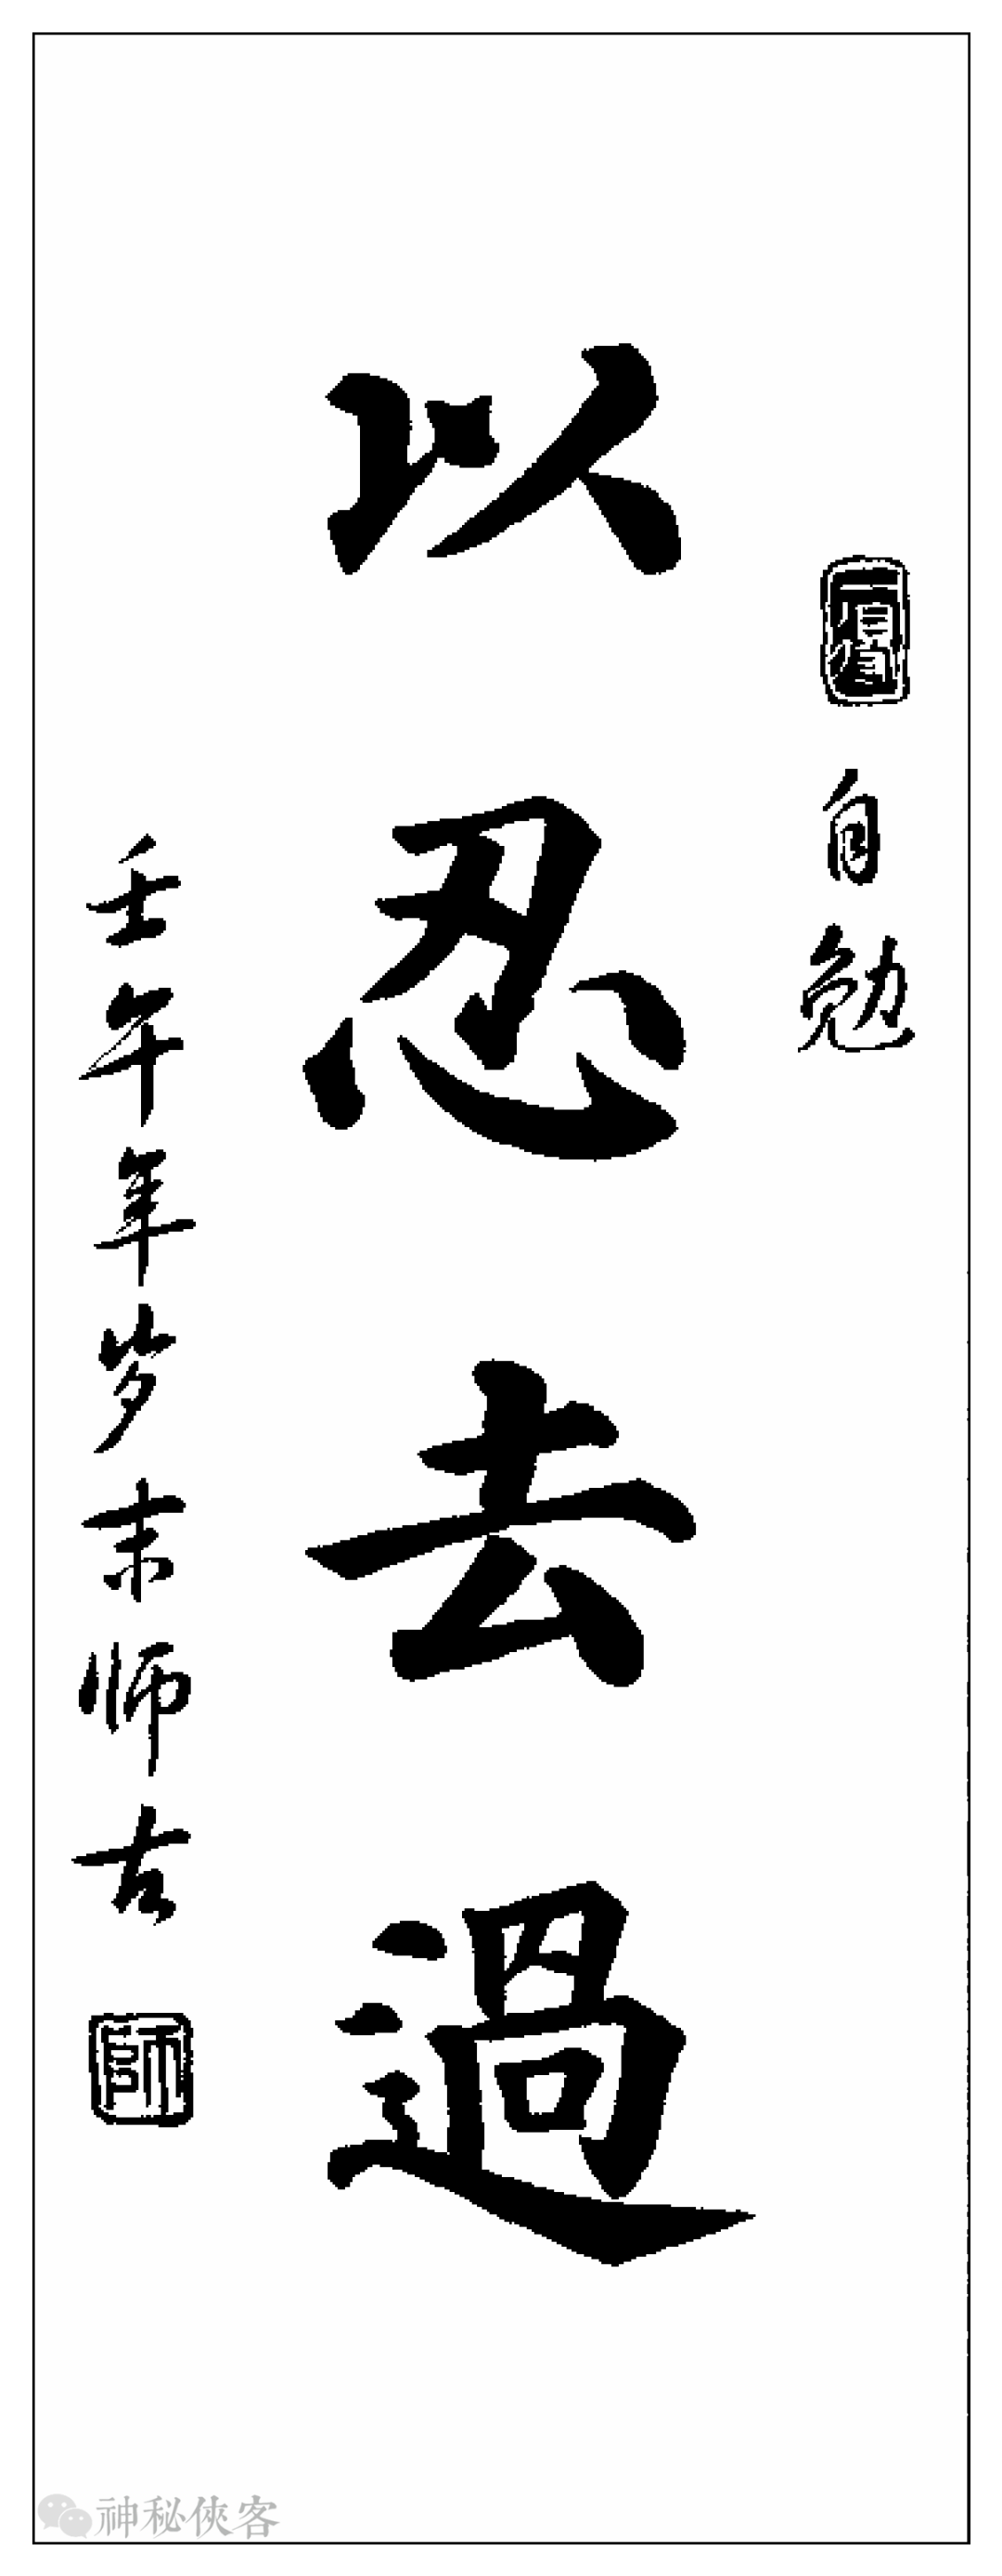 自勉
以忍去過
壬午年岁末师古
師
神秘俠客